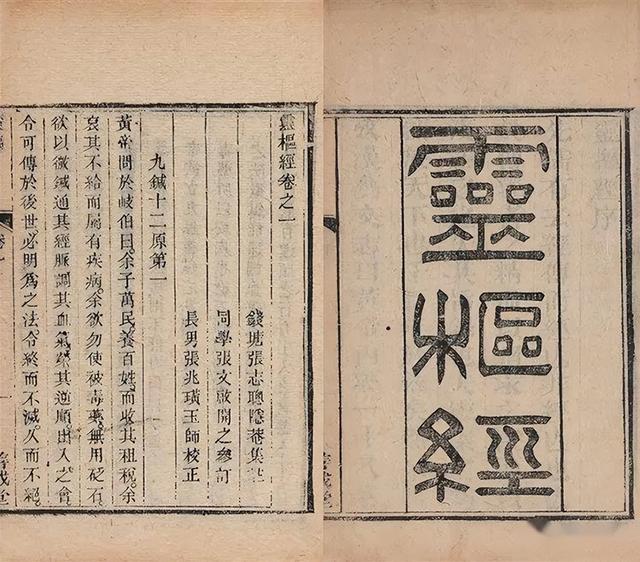 靈樞經
靈樞經卷之一
錢塘張志聰隱菴集註
同學張文啟開之參訂
長男張兆璜玉師校正
九鍼十二原第一
黃帝問於岐伯曰余子萬民養百姓而收其租稅。余
哀其不給而屬有疾病。余欲勿使被毒藥。無用砭石。
欲以微鍼通其經脈調其血氣營其逆順出入之會
令可傳於後世必明爲之法。令終而不滅。久而不絕。